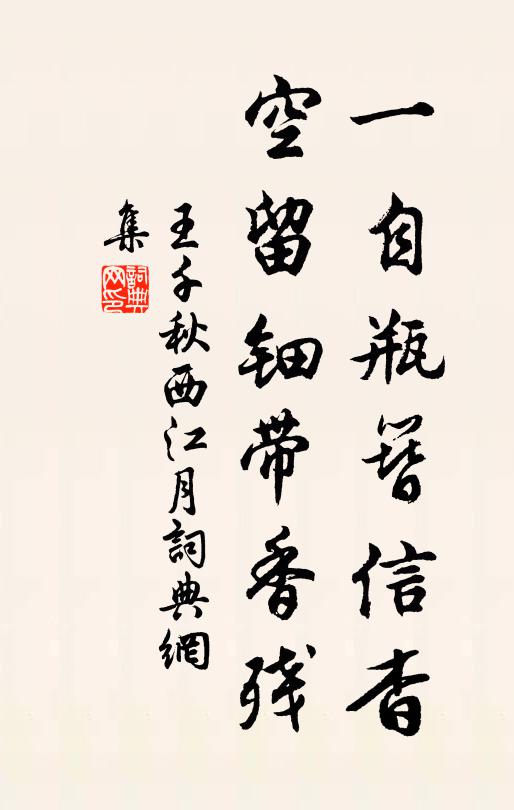 一自瓶簪信杳
空留钿带香残
王千秋西江月詞典網
集
詞典网印